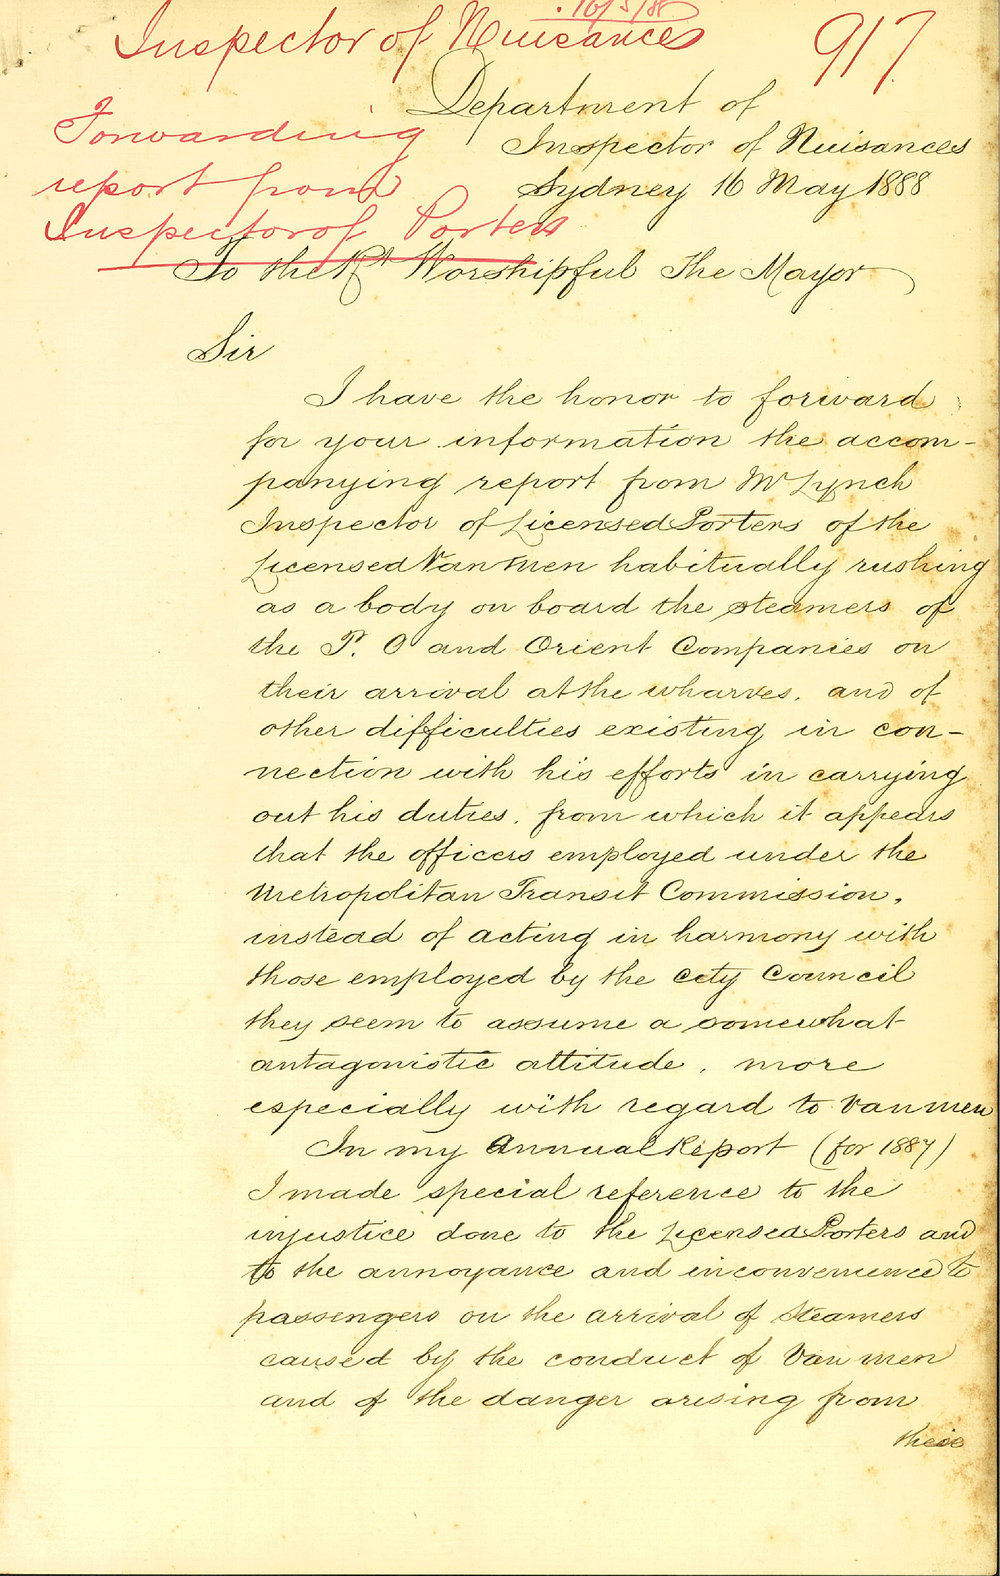 16/5/88
Inspector of Nuisances
917
Forwarding
report from
Inspector of Porters
Department of
Inspector of Nuisances
Sydney 16 May 1888
To the Rt Worshipful The Mayor
Sir
I have the honor to forward
for your information the accom-
panying report from Mr Lynch
Inspector of Licensed Porters of the
Licensed Vanmen habitually rushing
as a body on board the steamers of
the P. O and Orient Companies on
their arrival at the wharves, and of
other difficulties existing in con-
nection with his efforts in carrying
out his duties, from which it appears
that the officers employed under the
Metropolitan Transit Commission,
instead of acting in harmony with
those employed by the City Council
they seem to assume a somewhat
antagonistic attitude, more
especially with regard to Vanmen
In my Annual Report (for 1887)
I made special reference to the
injustice done to the Licensed Porters and
to the annoyance and inconvenience to
passengers on the arrival of Steamers
caused by the conduct of Van men
and of the danger arising from
their